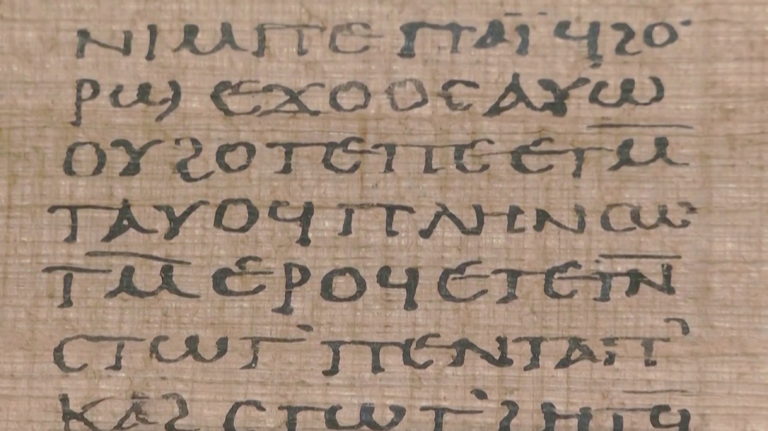 ⲛⲓⲙⲡⲉ ⲡⲁⲓ̈ ϥϩⲟ
ⲣϣ ⲉϫⲟⲟⲥ ⲁⲩⲱ
ⲟⲩϩⲟⲧⲉⲡⲉ ⲉⲧⲙ̅
ⲧⲁⲩⲟϥ ⲡⲗⲏⲛ ⲥⲱ
ⲧⲙ̅ ⲉⲣⲟϥ ⲉⲧⲉⲧⲛ̅
ⲥⲧⲱⲧ' ⲡⲉⲛⲧⲁⲡ'
ⲕⲁϩ ⲥⲧⲱⲧ' ϩⲏⲧϥ̅